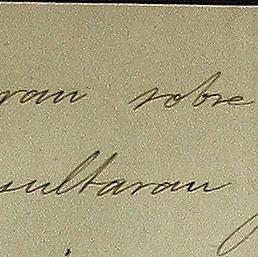 ran sobre
sultaran